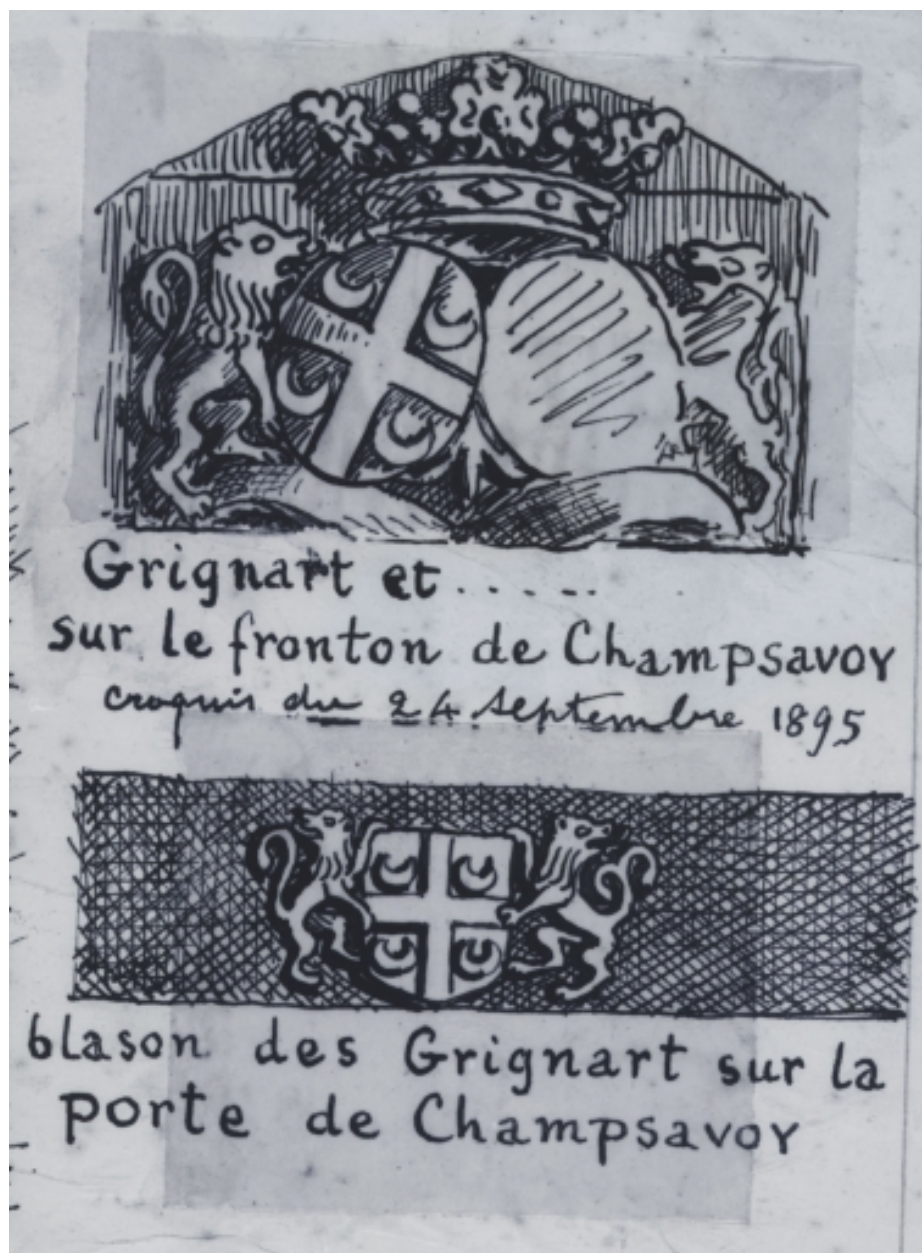 Grignart et ......
sur le fronton de Champsavoy
croquis du 24 septembre 1895
blason des Grignart sur la
porte de Champsavoy